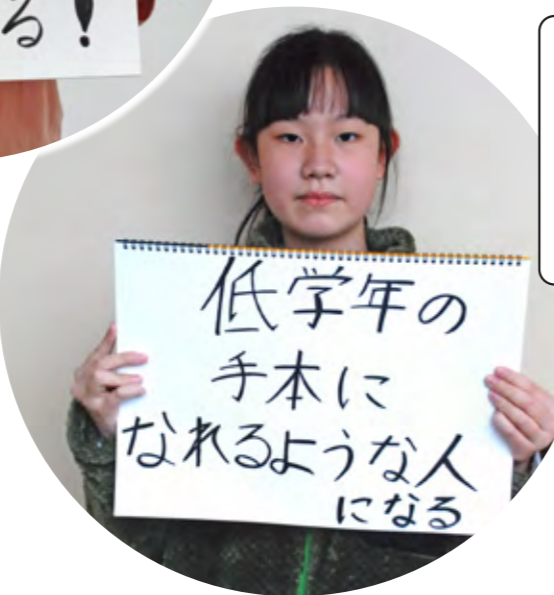 る!
低学年の
手本に
なれるような人
になる